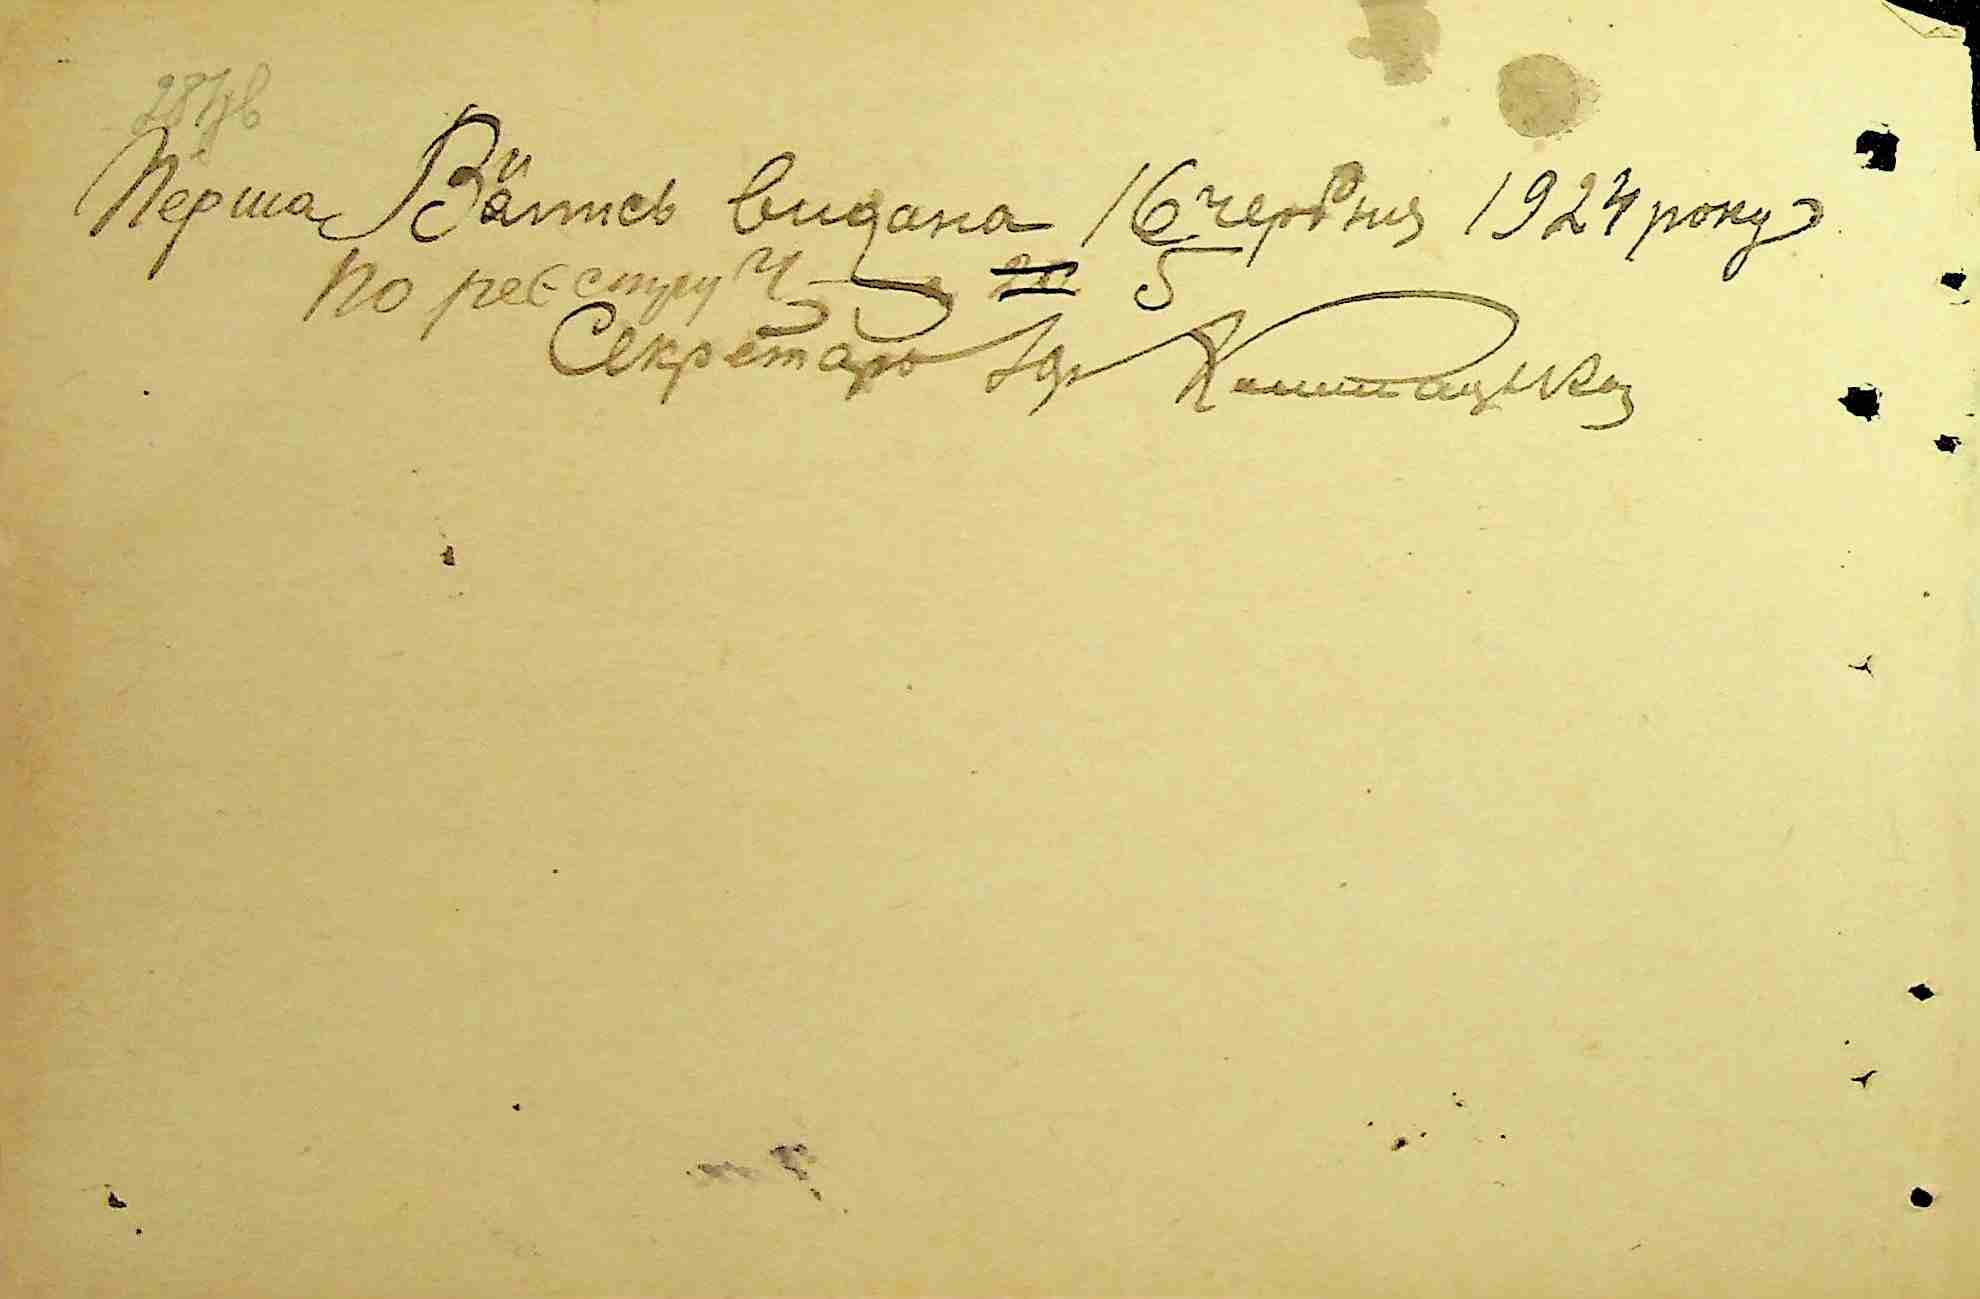 287зв
Перша Випись видана 16 червня 1924 року
по реєстру Ч 5
Секретарь